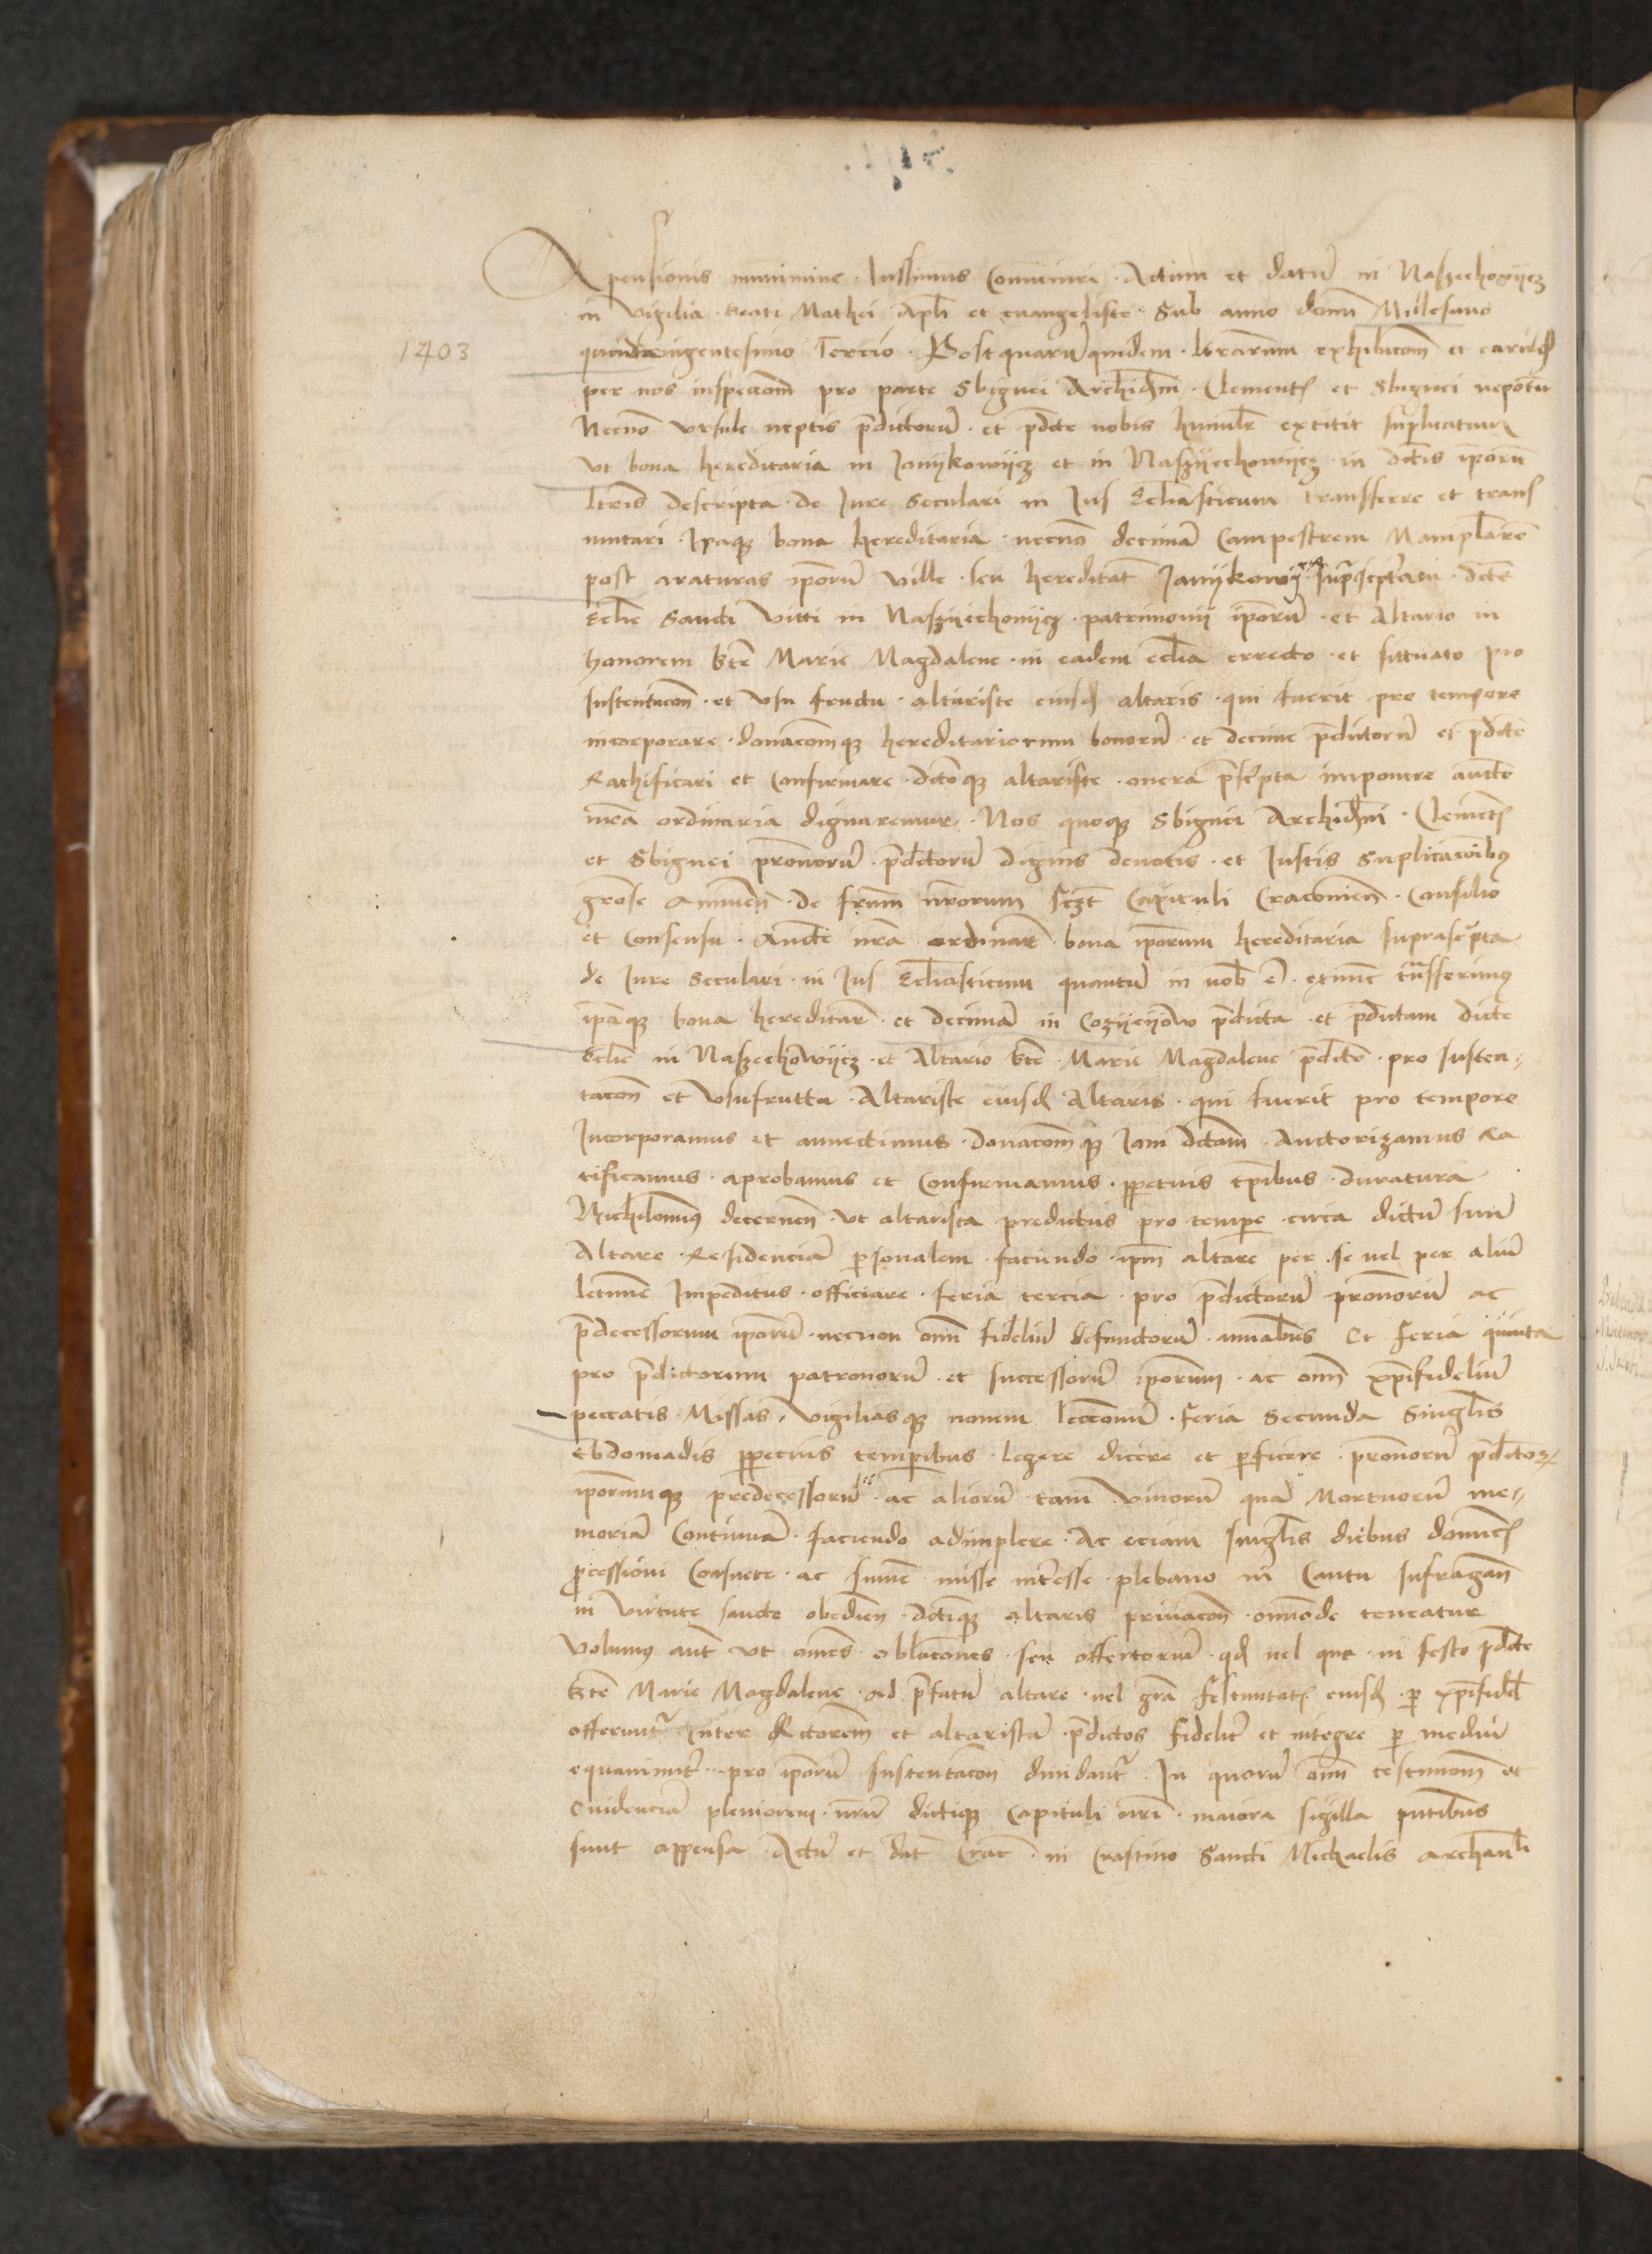 Apensionis munimine. Iussimus Comuniri. Actum et datū in Naszechowijcz
in vigilia beati Mathei Apli et evangeliste. Sub anno domī Millesimo
1403
quadringentesimo Tercio. Postquarūquidem. lrarum exhibicōm et earūdē
per nos inspeccōm pro parte Sbignei Archidni. Clementē et Sbignei nepotū
Necnō Ursule neptis p̄dictorū. et p̄dcte nobis humilr̄ extitit suplicatum
Ut bona hereditaria in Janijkowijcz et in Naszijechowijcz. in dctis ip̄orū
ltris descripta. de Jure seculari in Jus Eccl̄iasticum transferre et trans
mutari. Ipaq̄ bona hereditaria. necnō decimā Campestrem Manipularē
post araturas ip̄orū ville. seu hereditat̄ Janijkowijcz. supscptam. dcte
Eccl̄ie Sancti Vitti in Naszijechowijcz. patrimonij ip̄orū. et Altario in
honorem bt̄e Marie Magdalene. in eadem eccl̄ia errecto. et sittuato pro
sustentacōe. et Usu fructu. altariste eiusd̄ altaris. qui fuerit pro tempore
incorporare. donacōmq̄ hereditariorum bonorū. et decime p̄dictorū et p̄dcte
Rathificari et Confirmare. dctoq̄ altariste. onera p̄scripta imponere auctē
nr̄a ordinaria dignaremur. Nos quoq̄ Sbignei Archidni. Clementē
et Sbignei pr̄onorū. p̄dctorū dignis devotis. et Iustis suplicacōibus
grōse Annuen. de fr̄um nr̄orum scꝫt Capituli Cracovien. Consilio
et Consensu. Auctē nr̄a ordinar̄. bona ip̄orum hereditaria suprascp̄ta
de Jure seculari. in Jus Eccl̄iasticum quantū in nob̄ ē. extunc tūssferimus
ip̄aq̄ bona hereditar̄. et decimā in Cozijeijow p̄dicta. et p̄dictam dicte
Eccl̄ie in Naszechowijcz. et Altario bt̄e. Marie Magdalene p̄dcto. pro susten-
tacōe et Usufructu. Altariste eiusd̄ Altaris. qui fuerit pro tempore
Incorporamus et annectimus. Donacōmq̄ Iam dctam. Auctorizamus Ra
tificamus. aprobamus et Confirmamus. ppetuis tp̄ibus. duratura
Nichilominus decernen. ut altarista predictus pro tempore circa dictū suū
Altare. Residenciā p̄sonalem. faciendo. ip̄m altare per se vel per aliū
letime Impeditus. officiare. feria tercia. pro p̄dictorū pr̄onorū ac
p̄decessorum ip̄orū. necnon om̄ fideliū defunctorū. aīabus Et feria quinta
pro p̄dictorum patronorū. et successorū ip̄orum. ac om̄ xp̄ifideliū
peccatis. Missas. vigiliasq̄ novem leccōnū. Feria Secunda Singul̄is
Ebdomadis ppetuis temporibus. legere dicere et p̄ficere. pr̄onorū p̄dctorꝝ
ip̄orumq̄ predecessorū. ac aliorū tam vivorū quā Mortuorū me-
moriā Continuā. faciendo adimplere. Ac eciam singl̄is diebus domīcꝭ
p̄cessioni Consuete. ac sūme misse int̄esse. plebano in Cantu sufragan̄
in virtute sancte obedien. dctiq̄ altaris privacōn. omnōde teneatur
Volumus aut̄ ut om̄es. oblacōnes. seu offertoriū. qd̄ vel que. in festo p̄dcte
bt̄e Marie Magdalene. ad p̄fatū altare. vel grā festivitatꝭ eiusd̄. p̄ xp̄ifidel̄
offeruntr̄ inter Rctorem et altaristā p̄dictos fidelit̄ et integre p̄ mediū
equanimit̄. pro ip̄orū sustentacōn dividantr̄. In quorū om̄ testimoniū et
Evidenciā pleniorem. nr̄um dictiq̄ Capituli nr̄i. maiora sigilla pn̄tibus
sunt appensa. Actū et dat̄ Crac̄. in Crastino Sancti Michaelis archanl̄i